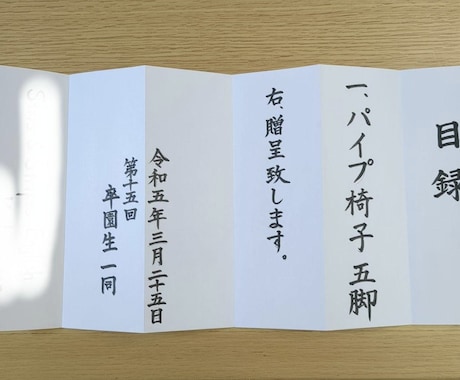 目録
一、パイプ椅子五脚
右、贈呈致します。
令和五年三月二十五日
第十五回
卒園生一同